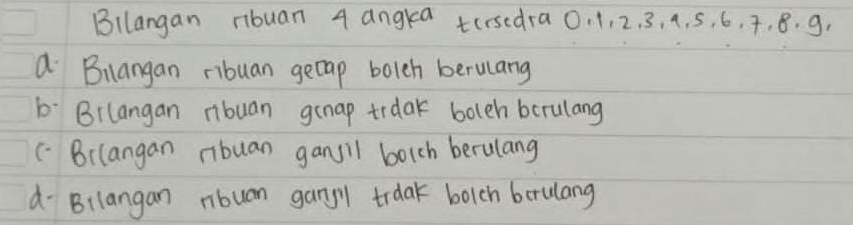 Bilangan ribuan 4 angka tersedia 0,1,2,3,4,5,6,7,8,9,
a. Bilangan ribuan genap boleh berulang
b. Bilangan ribuan genap tidak boleh berulang
c. Bilangan ribuan ganjil boleh berulang
d. Bilangan ribuan ganjil tidak boleh berulang